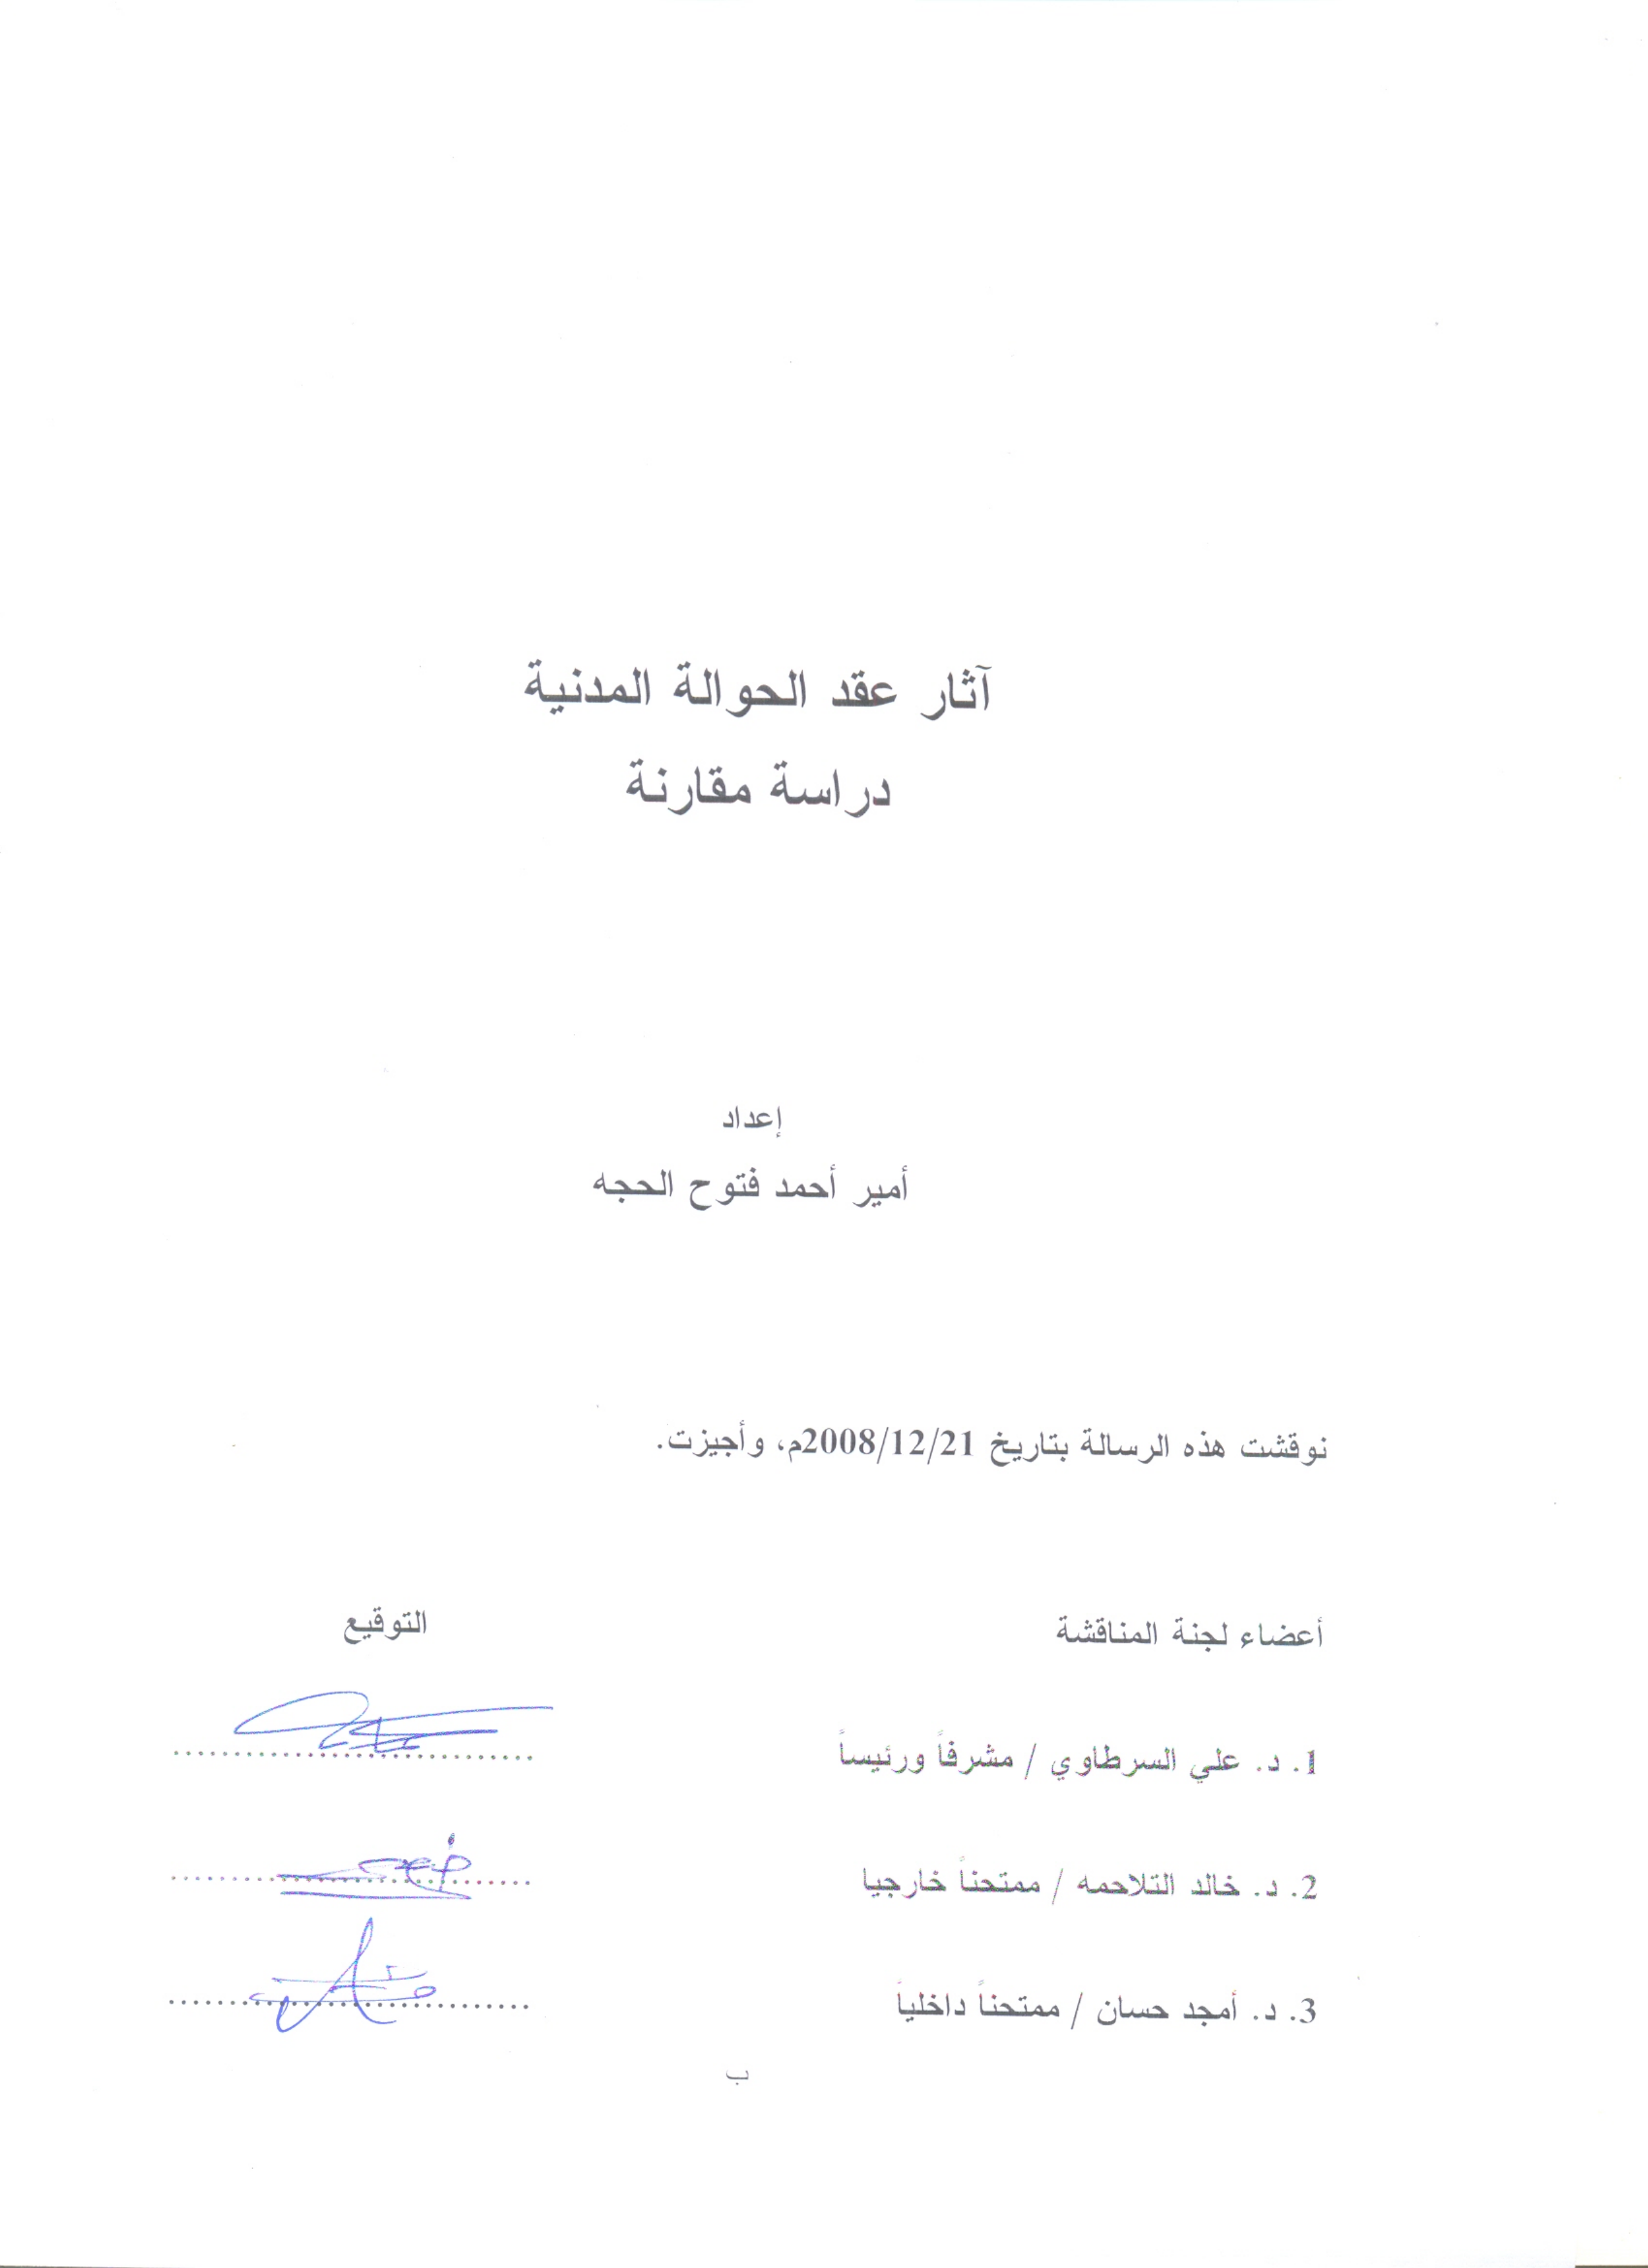 آثار عقد الحوالة المدنية
دراسة مقارنة
إعداد
أمير أحمد فتوح الحجه
نوقشت هذه الرسالة بتاريخ 2008/12/21م، وأجيزت.
أعضاء لجنة المناقشة التوقيع
1. د. علي السرطاوي / مشرفاً ورئيساً ..............................
2. د. خالد التلاحمه / ممتحناً خارجيا ..............................
3. د. أمجد حسان / ممتحناً داخلياً ..............................
ب